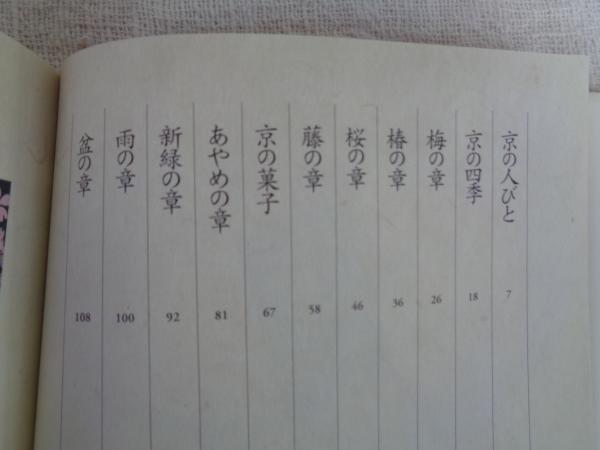 京の人びと 7
京の四季 18
梅の章 26
椿の章 36
桜の章 46
藤の章 58
京の菓子 67
あやめの章 81
新緑の章 92
雨の章 100
盆の章 108